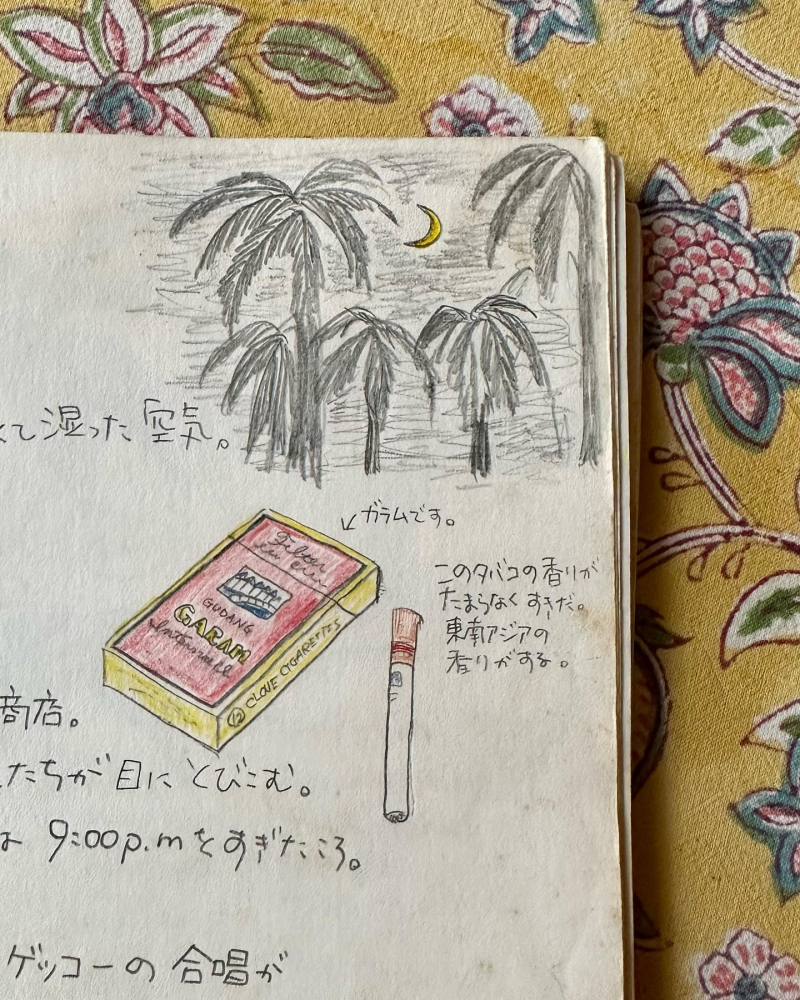 て湿った空気。
↙ガラムです。
Filter
GUDANG
GARAM
International
⑫ CLOVE CIGARETTES
このタバコの香りが
たまらなくすきだ。
東南アジアの
香りがする。
商店。
たちが目にとびこむ。
は 9:00p.mをすぎたころ。
ゲッコーの合唱が